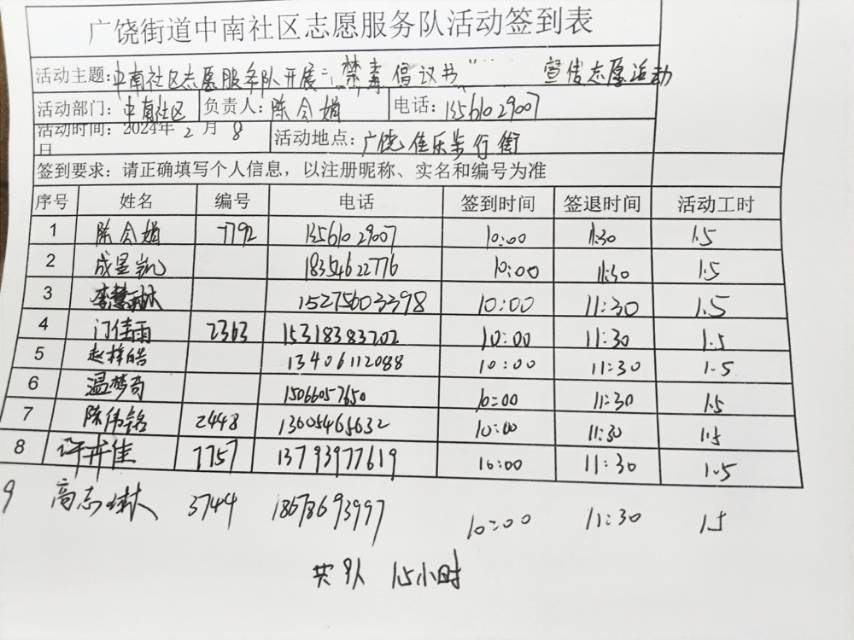 广饶街道中南社区志愿服务队活动签到表
活动主题:中南社区志愿服务队开展:"禁毒倡议书" 宣传志愿活动
活动部门:中南社区 负责人:陈令娟 电话:13561029007
活动时间:2024年 2 月 8 活动地点:广饶佳乐步行街
日
签到要求:请正确填写个人信息,以注册昵称、实名和编号为准
序号 姓名 编号 电话 签到时间 签退时间 活动工时
1 陈令娟 7792 13561029007 10:00 11:30 1.5
2 成昱凯 18354622776 10:00 11:30 1.5
3 李慧琳 15275603398 10:00 11:30 1.5
4 门佳雨 2363 15318383202 10:00 11:30 1.5
5 赵梓皓 13406112088 10:00 11:30 1.5
6 温梦奇 15066057650 10:00 11:30 1.5
7 陈伟铭 2448 13605465632 10:00 11:30 1.5
8 许卉佳 7757 13793977619 10:00 11:30 1.5
9 高志林 3744 18678693997 10:00 11:30 1.5
共9人 1.5小时